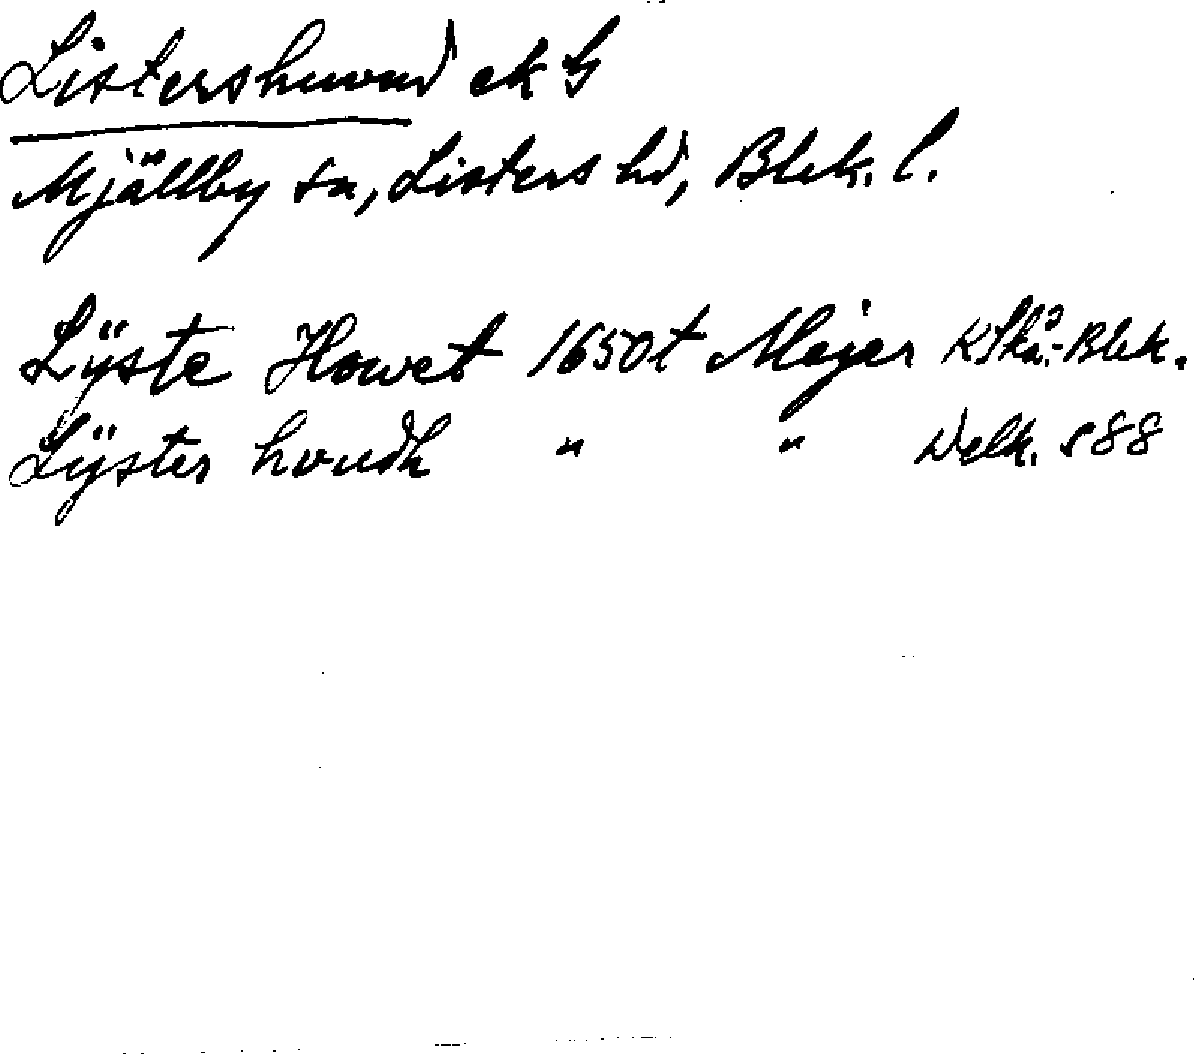 Listershuvud ek G
Mjällby sn, Listers hd, Blek. l.
Lÿste Howet 1650t Mejer KSkå.-Blek.
Lÿster houdh " " Delk. s 88